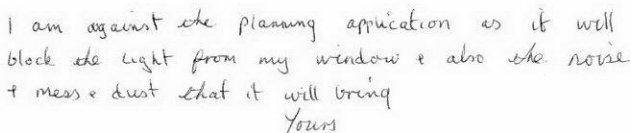 I am against the planning application as it will
block the light from my window & also the noise
& mess & dust that it will bring
Yours